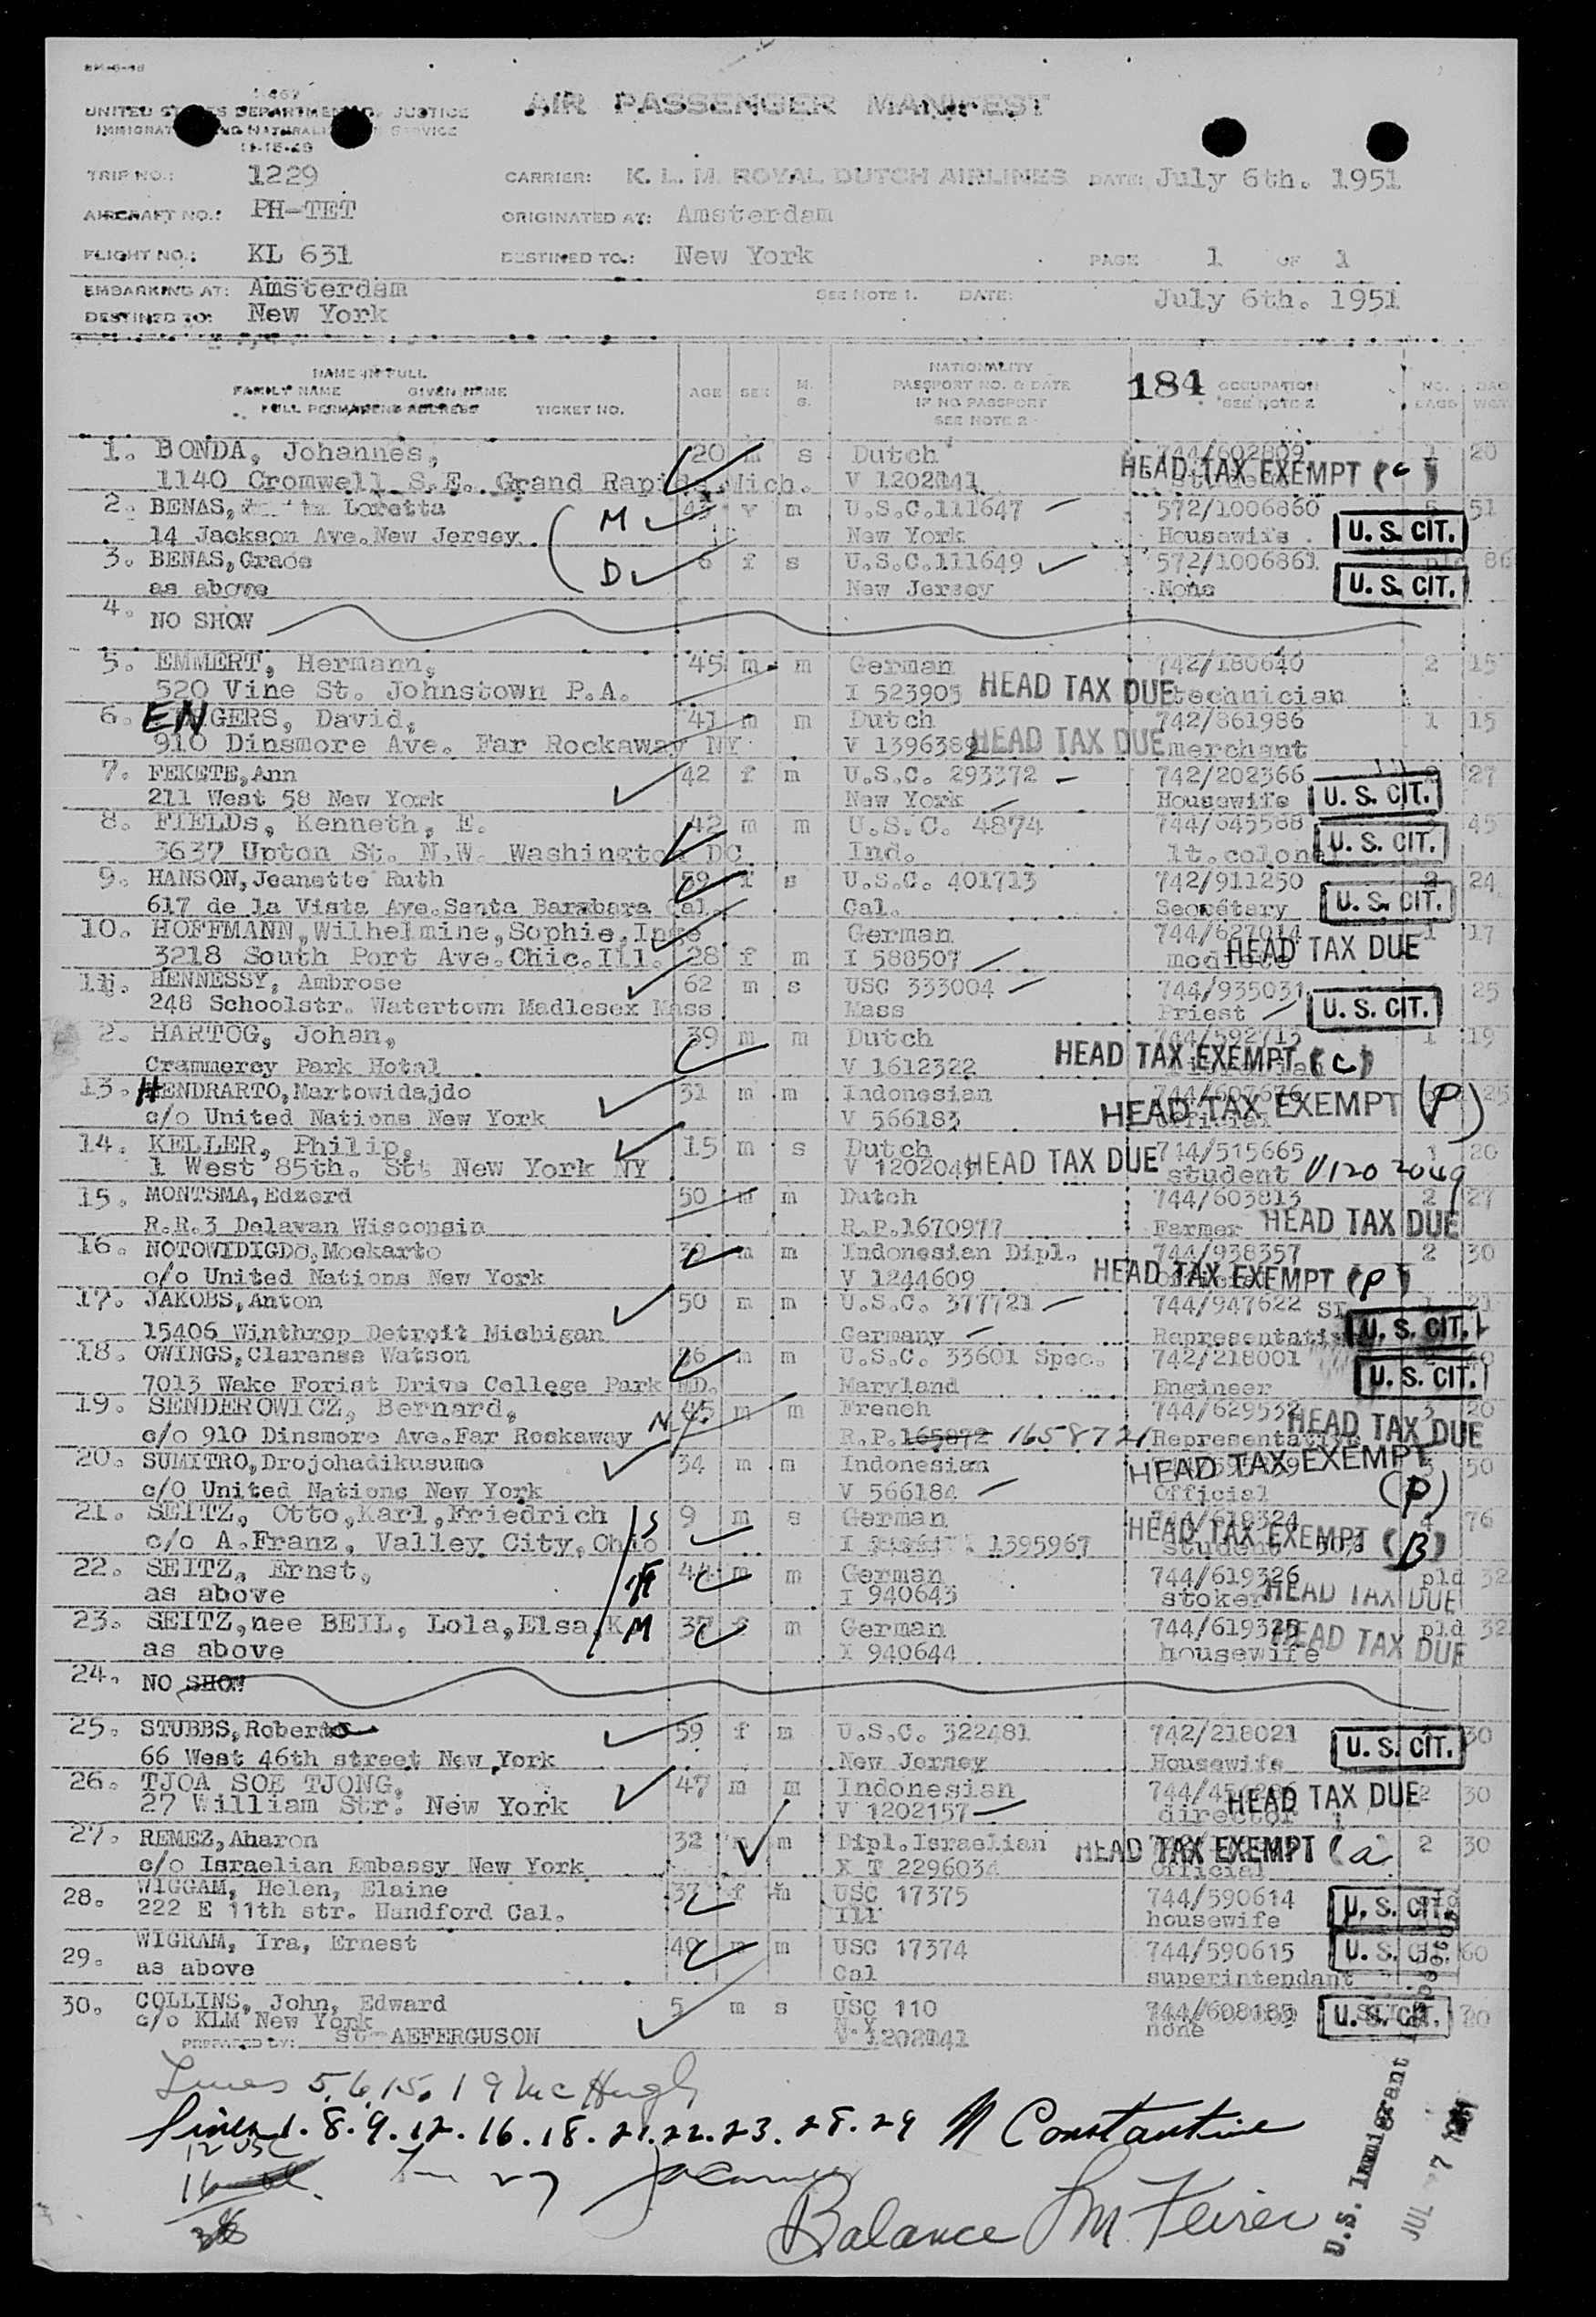 UNITED STATES DEPARTMENT OF JUSTICE
IMMIGRATION AND NATURALIZATION SERVICE
AIR PASSENGER MANIFEST
TRIP NO.: 1229 CARRIER: K. L. M. ROYAL DUTCH AIRLINES DATE: July 6th. 1951
AIRCRAFT NO.: PH-TET ORIGINATED AT: Amsterdam
FLIGHT NO.: KL 631 DESTINED TO.: New York PAGE 1 OF 1
EMBARKING AT: Amsterdam SEE NOTE 1. DATE: July 6th. 1951
DESTINED TO: New York
NAME IN FULL
FAMILY NAME GIVEN NAME
FULL PERMANENT ADDRESS TICKET NO. AGE SEX M. S.
NATIONALITY
PASSPORT NO. & DATE
IF NO PASSPORT
SEE NOTE 2
184 OCCUPATION
SEE NOTE 2
1. BONDA, Johannes, 20 m s Dutch 744/602809 1 20
1140 Cromwell S.E. Grand Rapids Mich. HEAD TAX EXEMPT (c)
2. BENAS, Loretta M m U.S.C.111647 572/1006860 51
14 Jackson Ave.New Jersey New York Housewife U. S. CIT.
3. BENAS,Grace D 6 f s U.S.C.111649 572/1006861 pld 86
as above New Jersey None U. S. CIT.
4. NO SHOW
5. EMMERT, Hermann, 45 m m German 742/180640 2 15
520 Vine St. Johnstown P.A. I 523905 HEAD TAX DUE technician
6. ENGERS, David, 41 m m Dutch 742/861986 1 15
910 Dinsmore Ave. Far Rockaway NY V 1396389 HEAD TAX DUE merchant
7. FEKETE,Ann 42 f m U.S.C. 293372 742/202366 27
211 West 58 New York New York Housewife U. S. CIT.
8. FIELDs, Kenneth, E. 42 m m U.S.C. 4874 744/645588 45
3637 Upton St. N.W. Washington DC Ind. lt.colonel U. S. CIT.
9. HANSON,Jeanette Ruth 59 f s U.S.C. 401713 742/911250 2 24
617 de la Vista Ave.Santa Barabara Cal. Cal. Secretary U. S. CIT.
10. HOFFMANN,Wilhelmine,Sophie,Inge German 744/627014 1 17
3218 South Port Ave.Chic.Ill. 28 f m I 588507 HEAD TAX DUE
11. HENNESSY, Ambrose 62 m s USC 333004 744/935031 25
248 Schoolstr. Watertown Madlesex Mass Mass Priest U. S. CIT.
2. HARTOG, Johan, 39 m m Dutch 744/592713 1 19
Crammercy Park Hotal V 1612322 HEAD TAX EXEMPT (c)
13. HENDRARTO,Martowidajdo 31 m m Indonesian 25
c/o United Nations New York V 566183 HEAD TAX EXEMPT (P)
14. KELLER, Philip, 15 m s Dutch 744/515665 1 20
1 West 85th. Stt New York NY V 1202049 HEAD TAX DUE student V120 2049
15. MONTSMA,Edzerd 50 m m Dutch 744/603813 2 27
R.R.3 Delavan Wisconsin R.P.1670977 Farmer HEAD TAX DUE
16. NOTOWIDIGDO,Moekarto 39 m m Indonesian Dipl. 744/938357 2 30
c/o United Nations New York V 1244609 HEAD TAX EXEMPT (P)
17. JAKOBS,Anton 50 m m U.S.C. 377721 744/947622 1 21
15406 Winthrop Detroit Michigan Germany Representative U. S. CIT.
18. OWINGS,Clarense Watson 36 m m U.S.C. 33601 Spec. 742/218001
7013 Wake Forist Drive College Park MD. Maryland Engineer U. S. CIT.
19. SENDEROWICZ, Bernard, 45 m m French 744/629532 3 20
c/o 910 Dinsmore Ave.Far Rockaway NY R.P.165872 1658721 Representative HEAD TAX DUE
20. SUMITRO,Drojohadikusumo 34 m m Indonesian HEAD TAX EXEMPT 50
c/O United Nations New York V 566184 Official (P)
21. SEITZ, Otto,Karl,Friedrich S 9 m s German 744/619324 76
c/o A.Franz, Valley City, Ohio I 1395967 student HEAD TAX EXEMPT (B)
22. SEITZ, Ernst, 44 m m German 744/619326 pld 32
as above I 940643 stoker HEAD TAX DUE
23. SEITZ,nee BEIL, Lola,Elsa,K M 37 f m German 744/619325 pld 32
as above I 940644 housewife HEAD TAX DUE
24. NO SHOW
25. STUBBS,Roberta 59 f m U.S.C. 322481 742/218021 30
66 West 46th street New York New Jersey Housewife U. S. CIT.
26. TJOA SOE TJONG, 47 m m Indonesian 2 30
27 William Str. New York V 1202157 director HEAD TAX DUE
27. REMEZ,Aharon 32 m m Dipl.Israelian HEAD TAX EXEMPT (a) 2 30
c/o Israelian Embassy New York X T 2296034 Official
28. WIGGAM, Helen, Elaine 37 f m USC 17375 744/590614
222 E 11th str. Handford Cal. Ill housewife U. S. CIT.
29. WIGRAM, Ira, Ernest 40 m m USC 17374 744/590615 60
as above Cal superintendant U. S. CIT.
30. COLLINS, John, Edward 5 m s USC 110 744/608185 20
c/o KLM New York N.Y none U. S. CIT.
PREPARED BY: AEFERGUSON
Lines 5.6.15.19 McHugh
Lines 1.8.9.12.16.18.21.22.23.28.29 N Constantine
12 USC
16
Balance
U.S. Immigrant
JUL 7